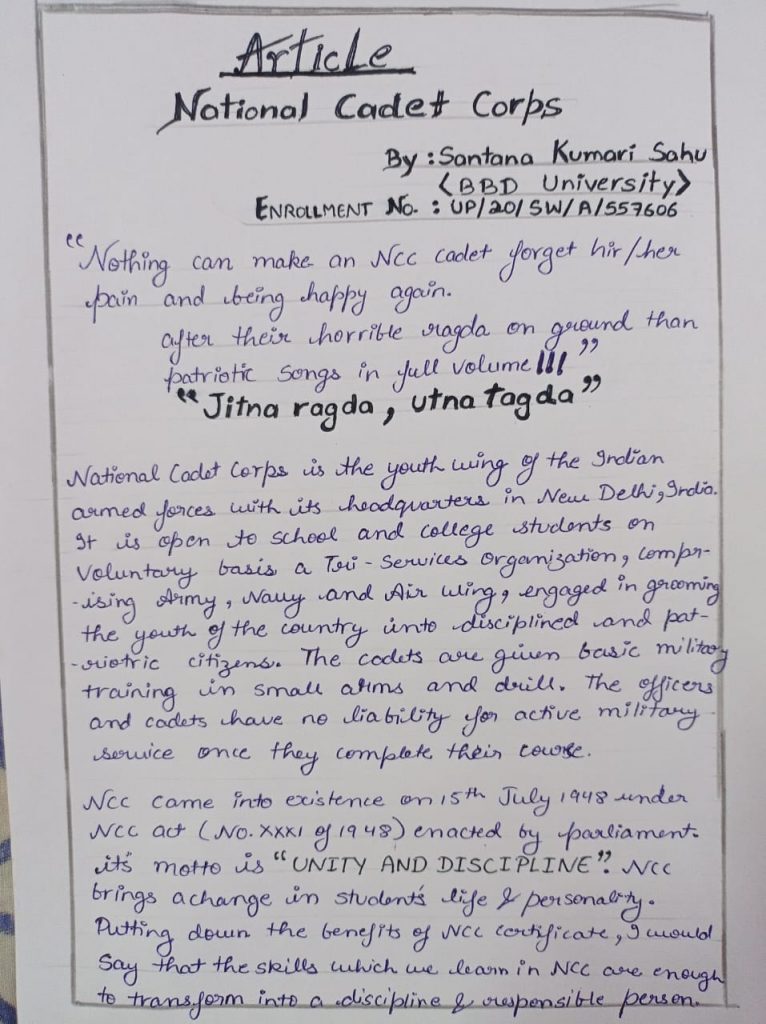 Article
National Cadet Corps
By : Santana Kumari Sahu
<BBD University>
ENROLLMENT No. : UP/20/SW/A/557606
"Nothing can make an NCC cadet forget hir/her
pain and being happy again.
after their horrible ragda on ground than
patriotic songs in full volume!!!"
"Jitna ragda, utna tagda"
National Cadet Corps is the youth wing of the Indian
armed forces with its headquarters in New Delhi, India.
It is open to school and college students on
Voluntary basis a Tri-Services Organization, compr-
-ising Army, Navy and Air wing, engaged in grooming
the youth of the country into disciplined and pat-
-riotric citizens. The cadets are given basic military
training in small arms and drill. The officers
and cadets have no liability for active military
service once they complete their course.
NCC came into existence on 15th July 1948 under
NCC act (NO. XXXI of 1948) enacted by parliament.
it's motto is "UNITY AND DISCIPLINE". NCC
brings a change in student's life & personality.
Putting down the benefits of NCC certificate, I would
Say that the skills which we learn in NCC are enough
to transform into a discipline & responsible person.